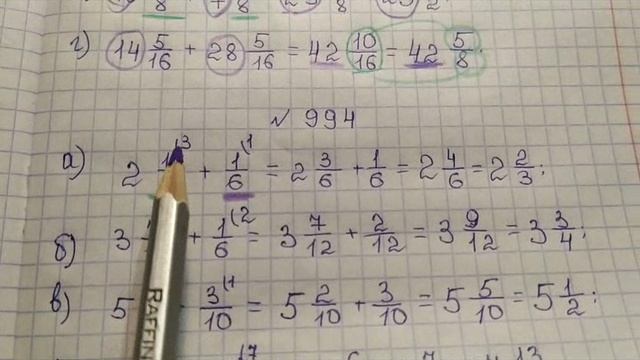 г) 14 5/16 + 28 5/16 = 42 10/16 = 42 5/8;
№ 994
а) 2 + 1/6 (1 = 2 3/6 + 1/6 = 2 4/6 = 2 2/3;
б) 3 + 1/6 (2 = 3 7/12 + 2/12 = 3 9/12 = 3 3/4;
в) 5 3/10 (1 = 5 2/10 + 3/10 = 5 5/10 = 5 1/2;
RAFFIN